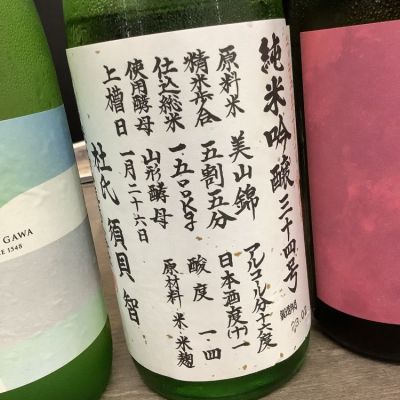 純米吟醸三十四号
アルコール分十六度
日本酒度(十)一
酸度 一.四
原材料 米・米麹
原料米 美山錦
精米歩合 五割五分
仕込総米 一五〇〇キロ
使用酵母 山形酵母
上槽日 一月二十六日
杜氏 須貝智
製造年月
GAWA
CE 1548